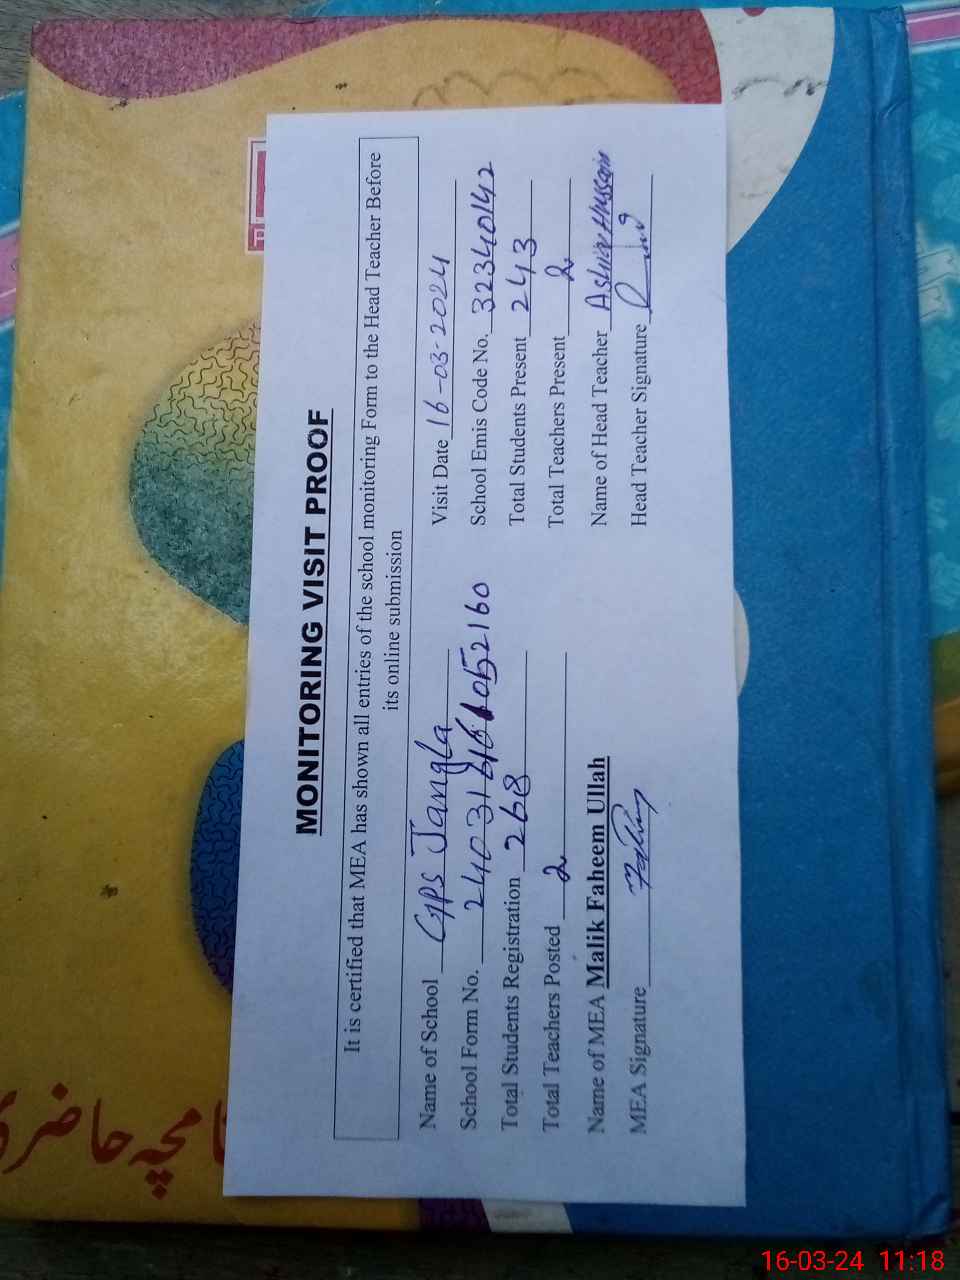 MONITORING VISIT PROOF
It is certified that MEA has shown all entries of the school monitoring Form to the Head Teacher Before
its online submission
Name of School GPS Jangla Visit Date 16-03-2024
School Form No. School Emis Code No. 32340142
Total Students Registration 268 Total Students Present 243
Total Teachers Posted 2 Total Teachers Present 2
Name of MEA Malik Faheem Ullah Name of Head Teacher Hussain
MEA Signature Head Teacher Signature
حاضری
16-03-24 11:18